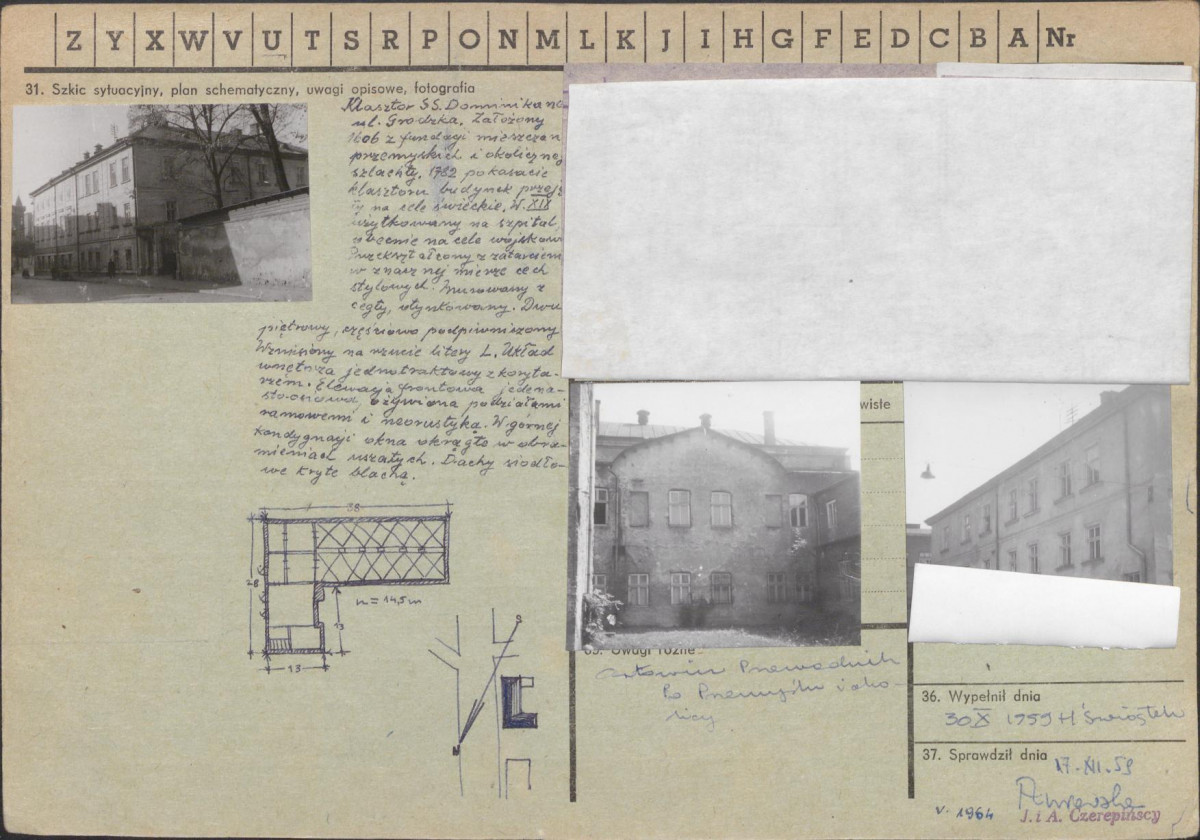 Z Y X W V U T S R P O N M L K J I H G F E D C B A Nr
31. Szkic sytuacyjny, plan schematyczny, uwagi opisowe, fotografia
Klasztor SS. Dominikanо
ul. Grodzka. Założony
1606 z fundacji mieszczan
przemyskich i okolicznej
szlachty. 1782 po kasacie
klasztoru budynek przeję
ty na cele świeckie. W. XIX
użytkowany na szpital,
obecnie na cele wojskowe
Przekształcony z zatarciem
w znacznej mierze cech
stylowych. Murowany z
cegły, otynkowany. Dwu
piętrowy, częściowo podpiwniczony
Wzniesiony na rzucie litery L. Układ
wnętrza jednotraktowy z koryta-
rzem. Elewacja frontowa jedena-
stoosiowa, ożywiona podziałami
ramowemi i neorustyką. W górnej
kondygnacji okna okrągłe w obra-
mieniach uszatych. Dachy siodło-
we kryte blachą.
38
28
n = 14,5 m
13
13
wiste
Uwagi różne
Przewodnik
Po Przemyślu i oko-
licy
36. Wypełnił dnia
30 X 1959 H Świątek
37. Sprawdził dnia
17.XI.59
V. 1964
J. i A. Czerepińscy